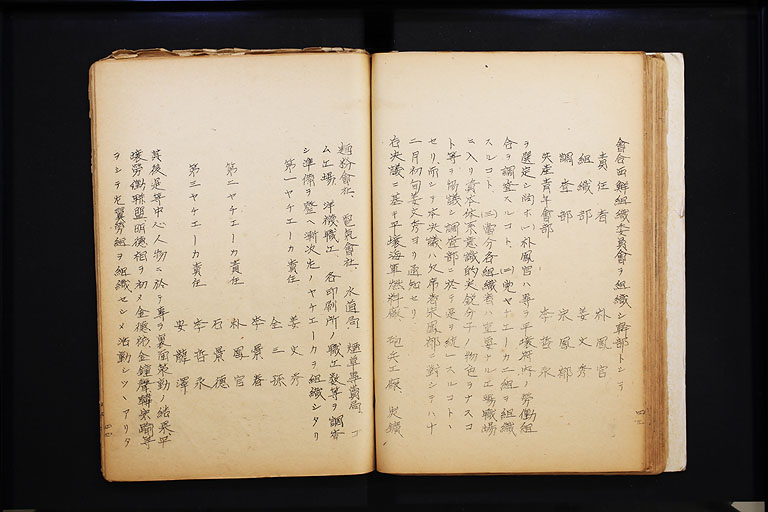 會合西鮮組織委員會ヲ組織シ幹部トシテ
責任者 朴鳳官
組織部 姜文秀
調査部 宋鳳郁
共産青年會部 李哲永
ヲ選定シ尚ホ(一)朴鳳官ハ專ラ平壤府內ノ勞働組
合ヲ調査スルコト、(二)ヤチエーカ二組ヲ組織
スルコト、(三)當分各組織者ハ工場職場
ニ入リ意識的尖鋭分子ノ物色ヲナスコ
ト等ヲ協議シ調査部ニ於テ之ヲ統一スルコトヽ
セリ、而シテ本決議ハ欠席者宋鳳郁ニ對シテハ十
二月初旬姜文秀ヨリ通知セリ
右決議ニ基キ平壤海軍燃料廠、砲兵工廠、
四三
粉會社、電氣會社、水道局、煙草專賣局、ゴ
ム工場、洋襪職工、各印刷所ノ職工數等ヲ調査
シ準備ヲ整ヘ漸次左ノヤチエーカヲ組織シタリ
第一ヤチエーカ責任 姜文秀
金三孫
李景春
第二ヤチエーカ責任 朴鳳官
石景德
第三ヤチエーカ責任 李哲永
安龍澤
其後是等中心人物ニ於テ專ラ裏面策動ノ結果平
壤勞働聯盟明德相ヲ初メ金德、金鐘聲、等
ヲシテ左翼勞組ヲ組織セシメ活動シツヽアリタ
四四